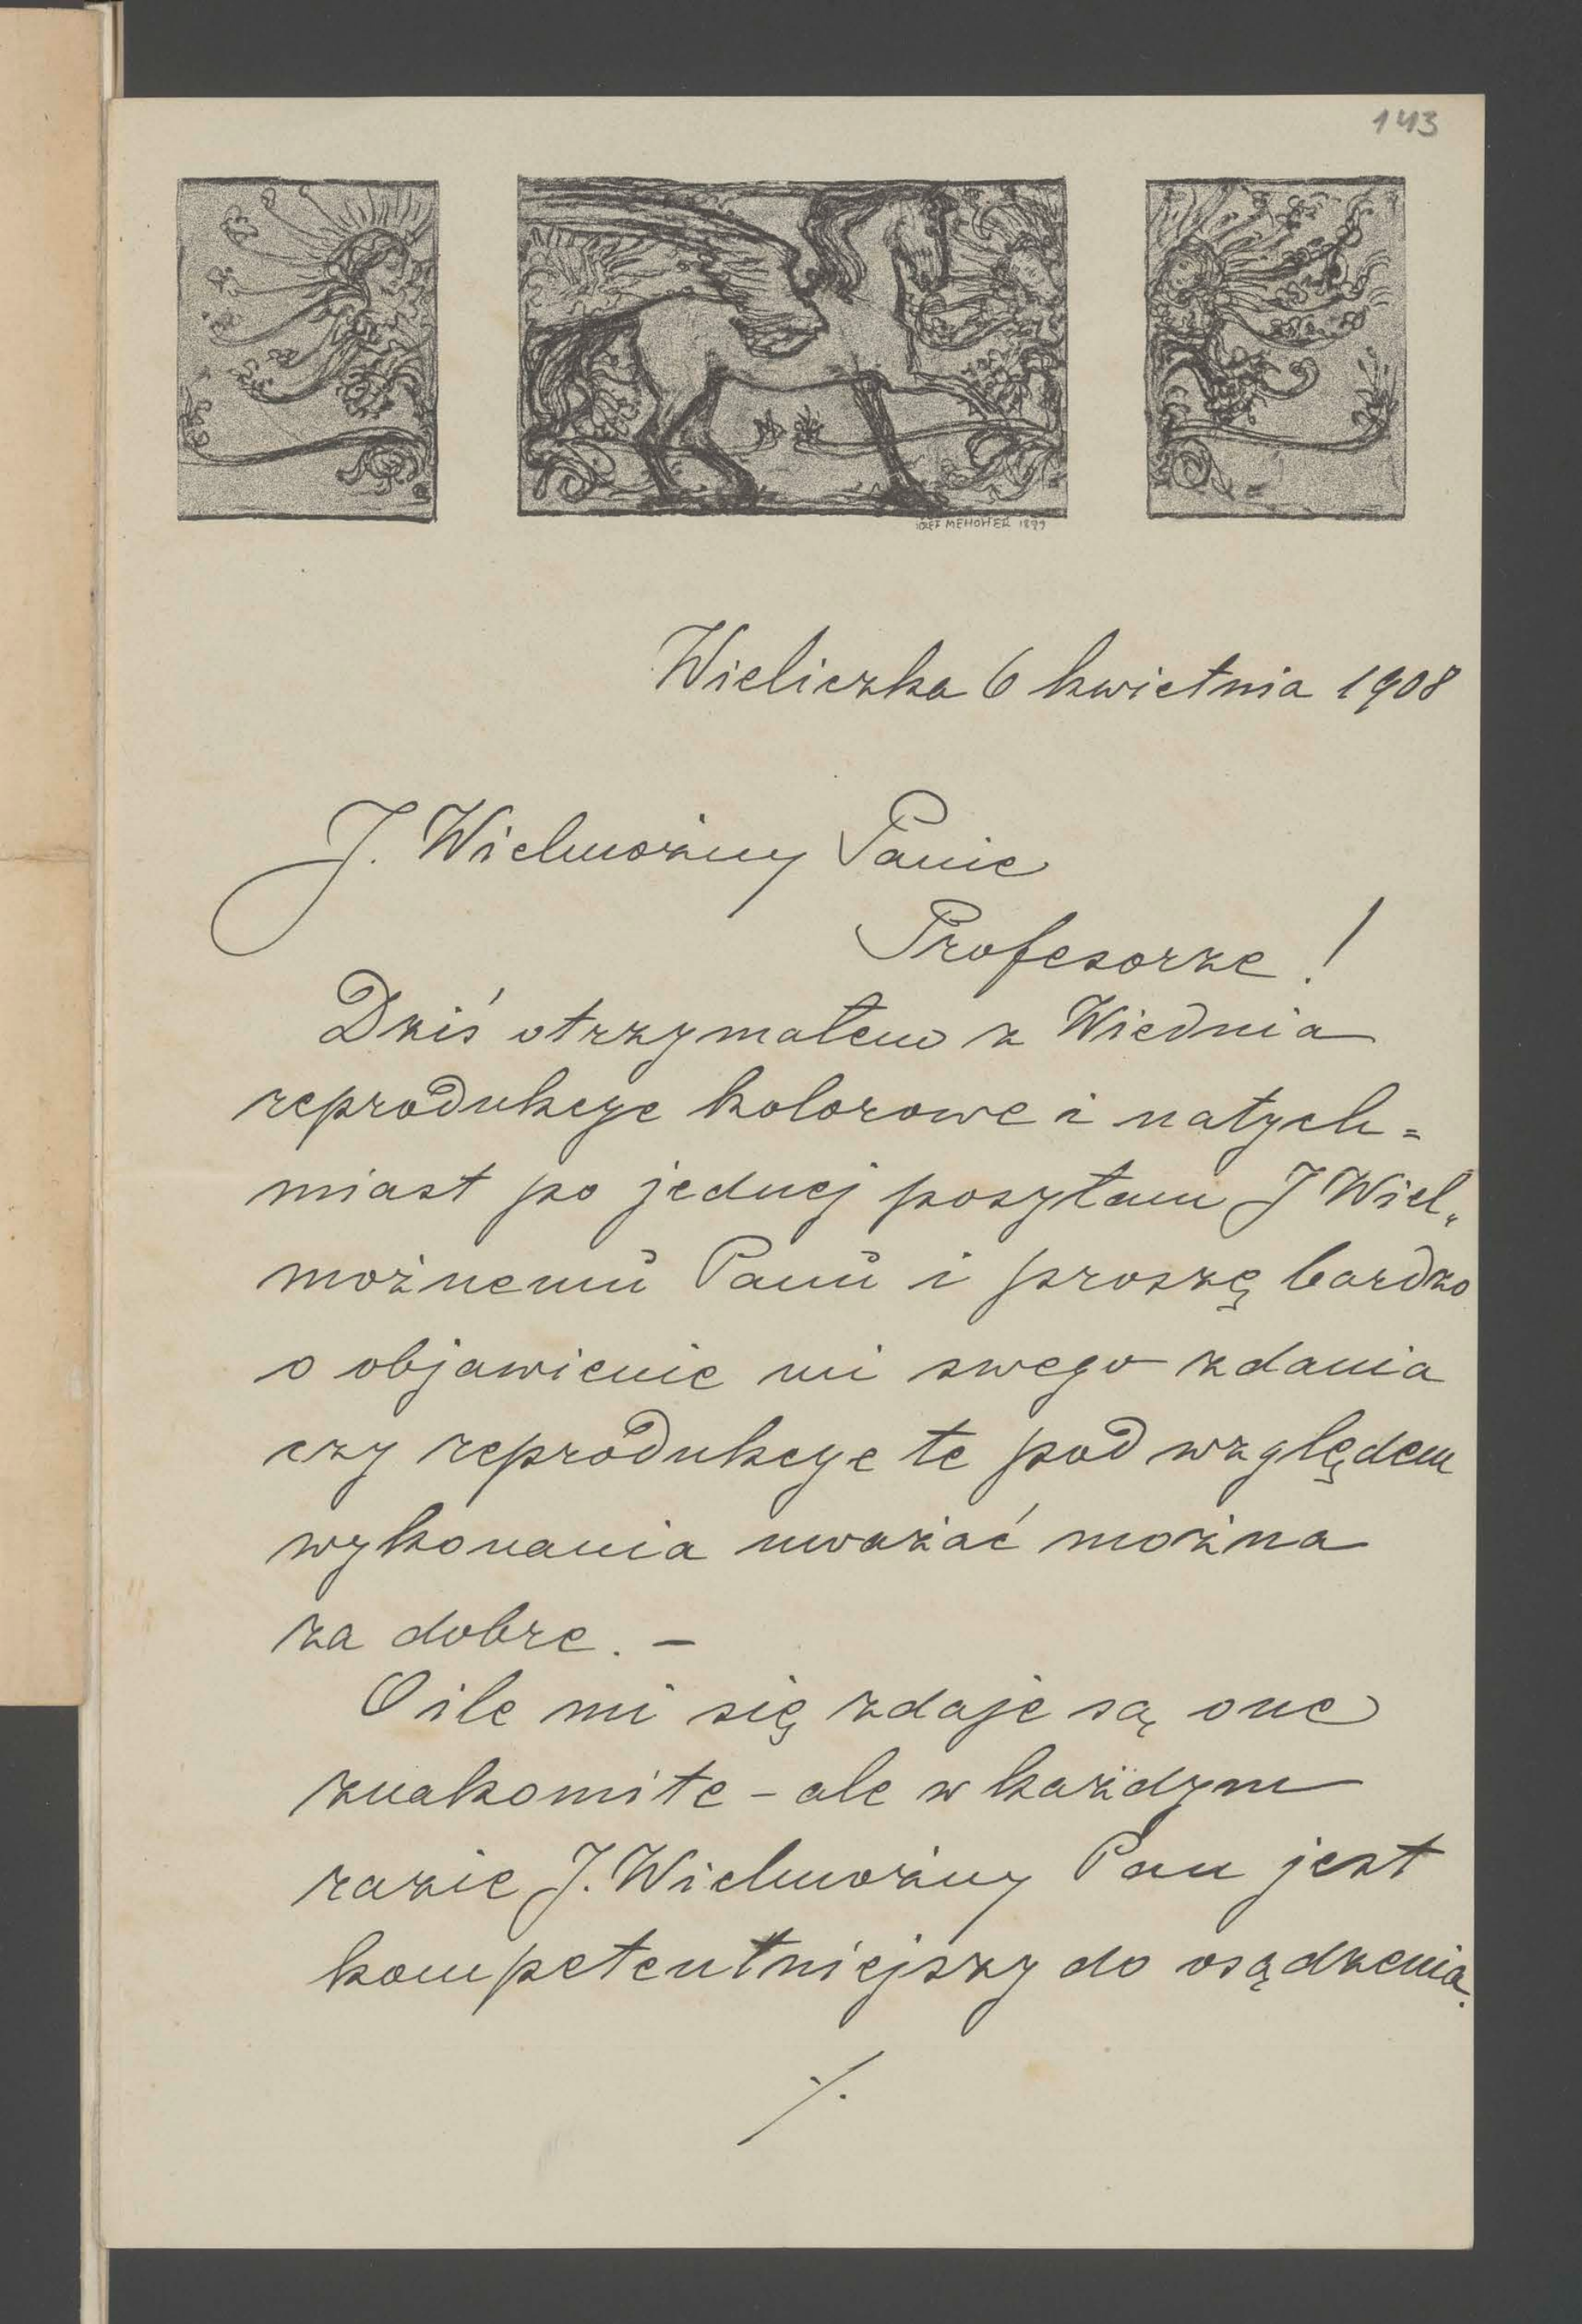 143
JOZEF MEHOFFER 1899
Wieliczka 6 kwietnia 1908
J. Wielmożny Panie
Profesorze!
Dziś otrzymałem z Wiednia
reprodukcye kolorowe i natych=
miast po jednej posyłam J Wiel„
możnemu Panu i proszę bardzo
o objawienie mi swego zdania
czy reprodukcye te pod względem
wykonania uważać można
za dobre. —
O ile mi się zdaje są one
znakomite – ale w każdym
razie J. Wielmożny Pan jest
kompetentniejszy do osądzenia.
./.